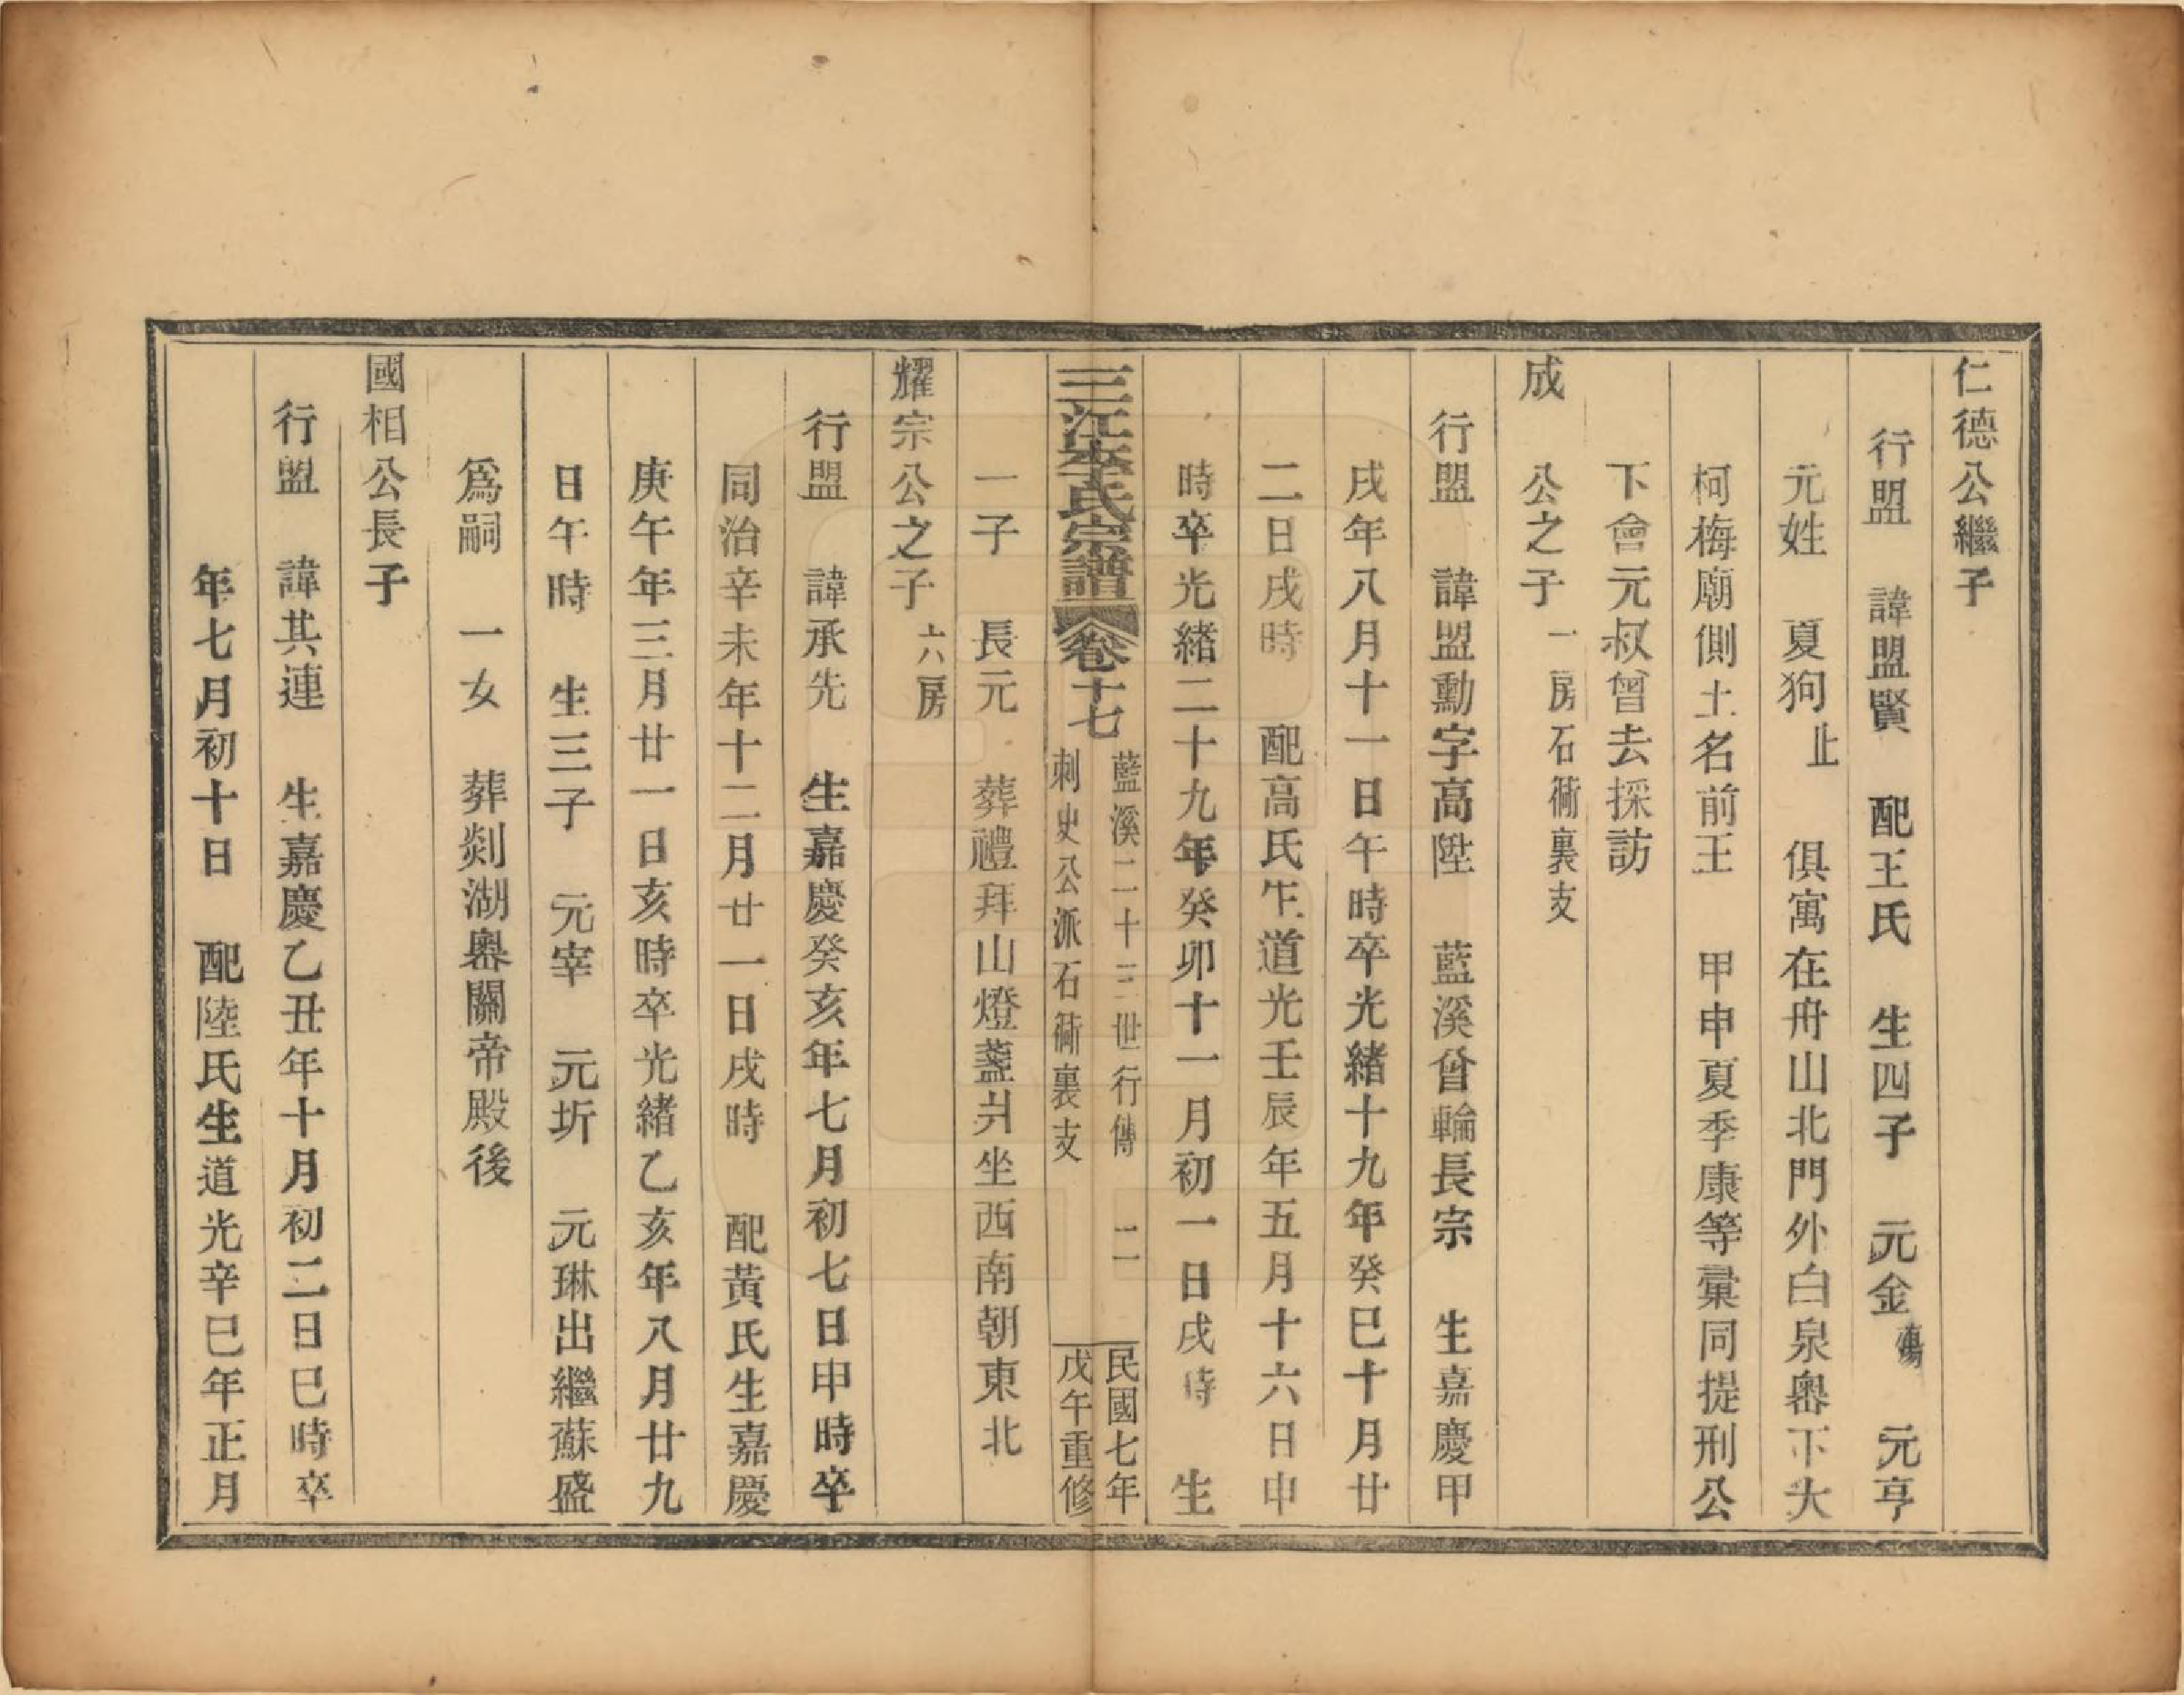 仁德公繼子
行盟　諱盟賢　配王氏　生四子　元金殤　元亨
元姓　夏狗止　俱寓在舟山北門外白泉嶴下大
柯梅廟側土名前王　甲申夏季康等彙同提刑公
下會元叔曾去採訪
成　公之子一房石衕裏支
行盟　諱盟勳字高陞　藍溪曾輪長宗　生嘉慶甲
戌年八月十一日午時卒光緒十九年癸巳十月廿
二日戌時　配高氏生道光壬辰年五月十六日申
時卒光緒二十九年癸卯十一月初一日戌時　生
一子　長元　葬禮拜山燈盞爿坐西南朝東北
三江李氏宗譜　卷十七　藍溪二十三世行傳　二
刺史公派石衕裏支
民國七年
戊午重修
耀宗公之子六房
行盟　諱承先　生嘉慶癸亥年七月初七日申時卒
同治辛未年十二月廿一日戌時　配黃氏生嘉慶
庚午年三月廿一日亥時卒光緒乙亥年八月廿九
日午時　生三子　元宰　元圻　元琳出繼蘇盛
爲嗣　一女　葬剡湖嶴關帝殿後
國相公長子
行盟　諱其連　生嘉慶乙丑年十月初二日巳時卒
年七月初十日　配陸氏生道光辛巳年正月